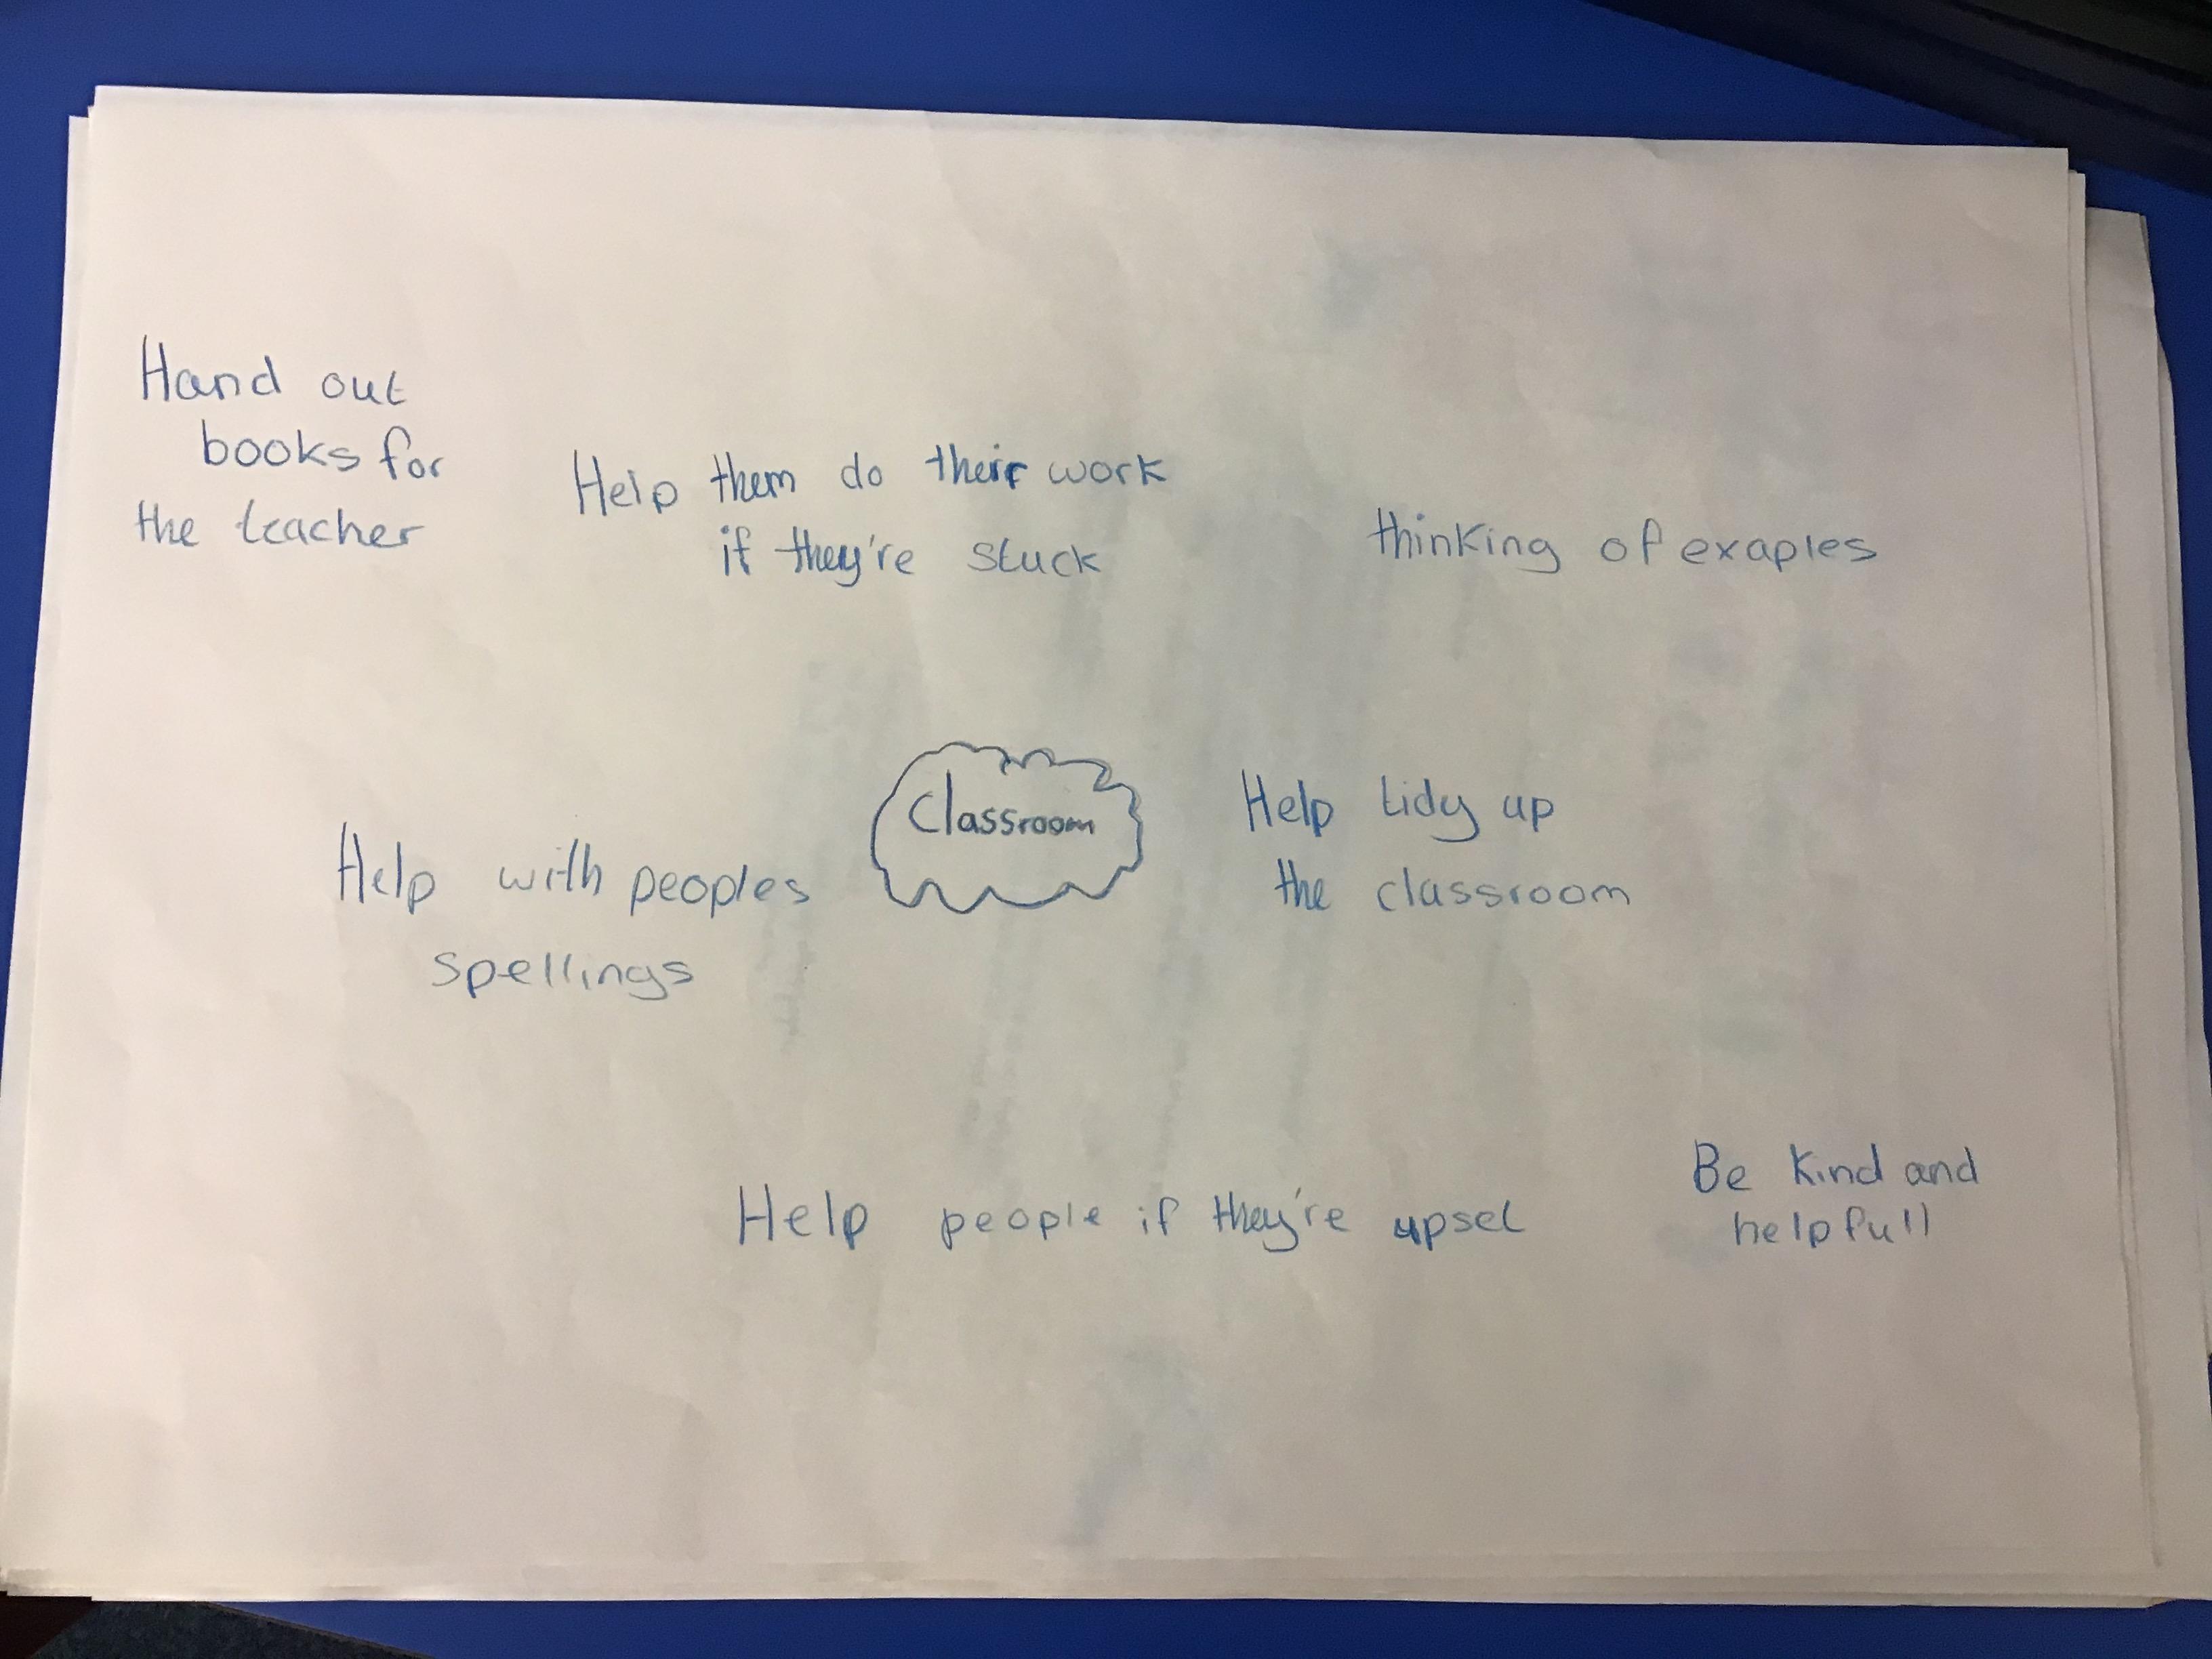 Hand out
books for
the teacher
Help them do their work
if they're stuck
thinking of exaples
Classroom
Help with peoples
spellings
Help tidy up
the classroom
Help people if they're upset
Be kind and
helpfull